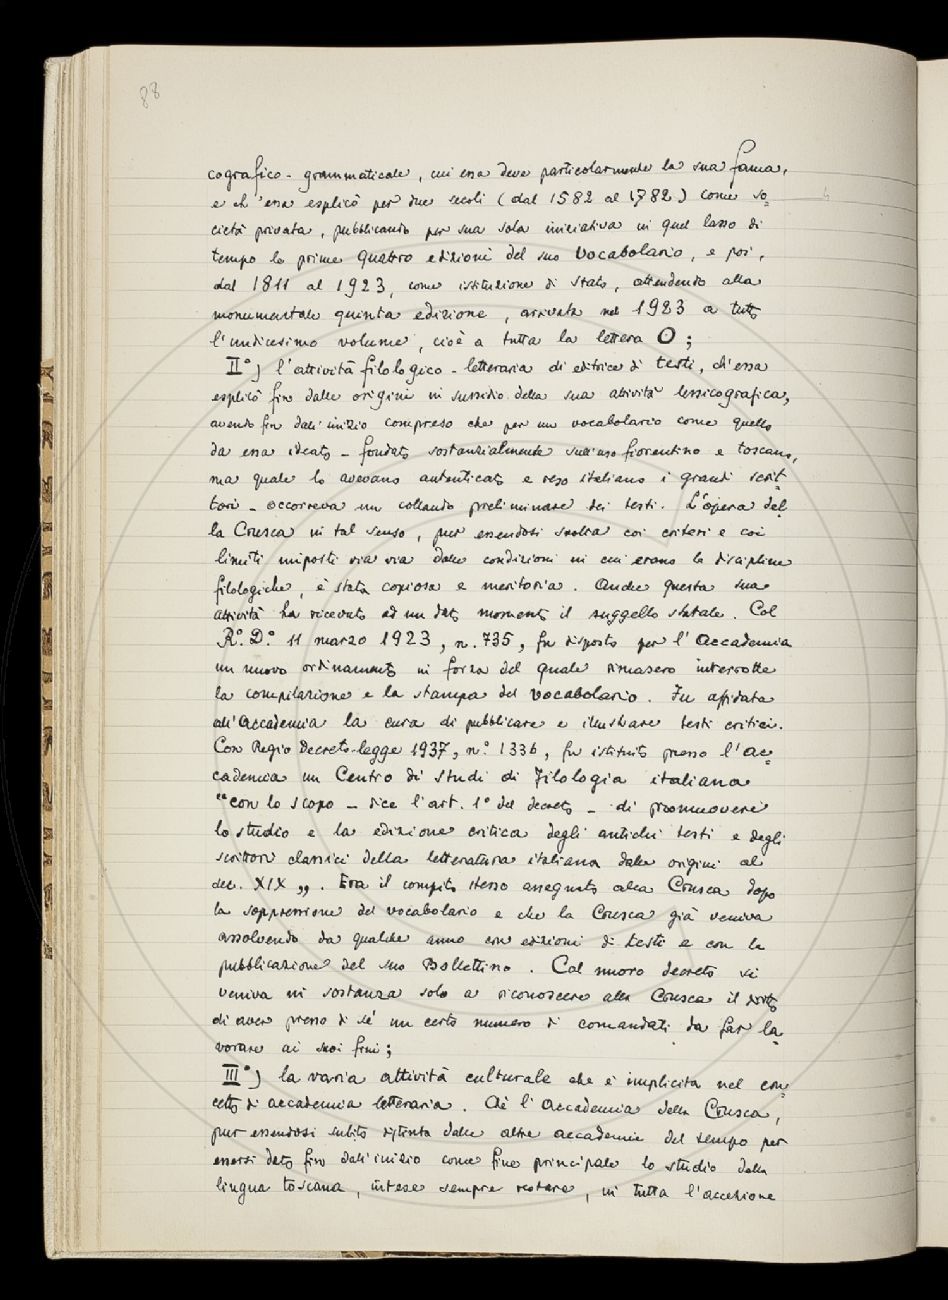 88
cografico-grammaticale, cui essa deve particolarmente la sua fama,
e ch'essa esplicò per due secoli (dal 1582 al 1782) come so=
cietà privata, pubblicando per sua sola iniziativa in quel lasso di
tempo le prime quattro edizioni del suo Vocabolario, e poi,
dal 1811 al 1923, come istituzione di Stato, attendendo alla
monumentale quinta edizione, arrivata nel 1923 a tutto
l'undicesimo volume, cioè a tutta la lettera O;
II°) l'attività filologico-letteraria di editrice di testi, ch'essa
esplicò fin dalle origini in sussidio della sua attività lessicografica,
avendo fin dall'inizio compreso che per un vocabolario come quello
da essa ideato - fondato sostanzialmente sull'uso fiorentino e toscano,
ma quale lo avevano autenticato e reso italiano i grandi scrit=
tori - occorreva un collaudo preliminare dei testi. L'opera del=
la Crusca in tal senso, pur essendosi svolta coi criteri e coi
limiti imposti via via dalle condizioni in cui erano le discipline
filologiche, è stata copiosa e meritoria. Anche questa sua
attività ha ricevuto ad un dato momento il suggello statale. Col
R.° D.° 11 marzo 1923, n. 735, fu disposto per l'Accademia
un nuovo ordinamento in forza del quale rimasero interrotte
la compilazione e la stampa del vocabolario. Fu affidata
all'Accademia la cura di pubblicare e illustrare testi critici.
Con Regio Decreto-legge 1937, n.° 1336, fu istituito presso l'Ac=
cademia un Centro di Studi di Filologia italiana
"con lo scopo - dice l'art. 1° del decreto - di promuovere
lo studio e la edizione critica degli antichi testi e degli
scrittori classici della letteratura italiana dalle origini al
sec. XIX„. Era il compito stesso assegnato alla Crusca dopo
la soppressione del vocabolario e che la Crusca già veniva
assolvendo da qualche anno con edizioni di testi e con la
pubblicazione del suo Bollettino. Col nuovo decreto si
veniva in sostanza solo a riconoscere alla Crusca il diritto
di aver presso di sé un certo numero di comandati da far la=
vorare ai suoi fini;
III°) la varia attività culturale che è implicita nel con=
cetto di accademia letteraria. Ché l'Accademia della Crusca,
pur essendosi subito distinta dalle altre accademie del tempo per
essersi dato fin dall'inizio come fine principale lo studio della
lingua toscana, intese sempre restare, in tutta l'accezione